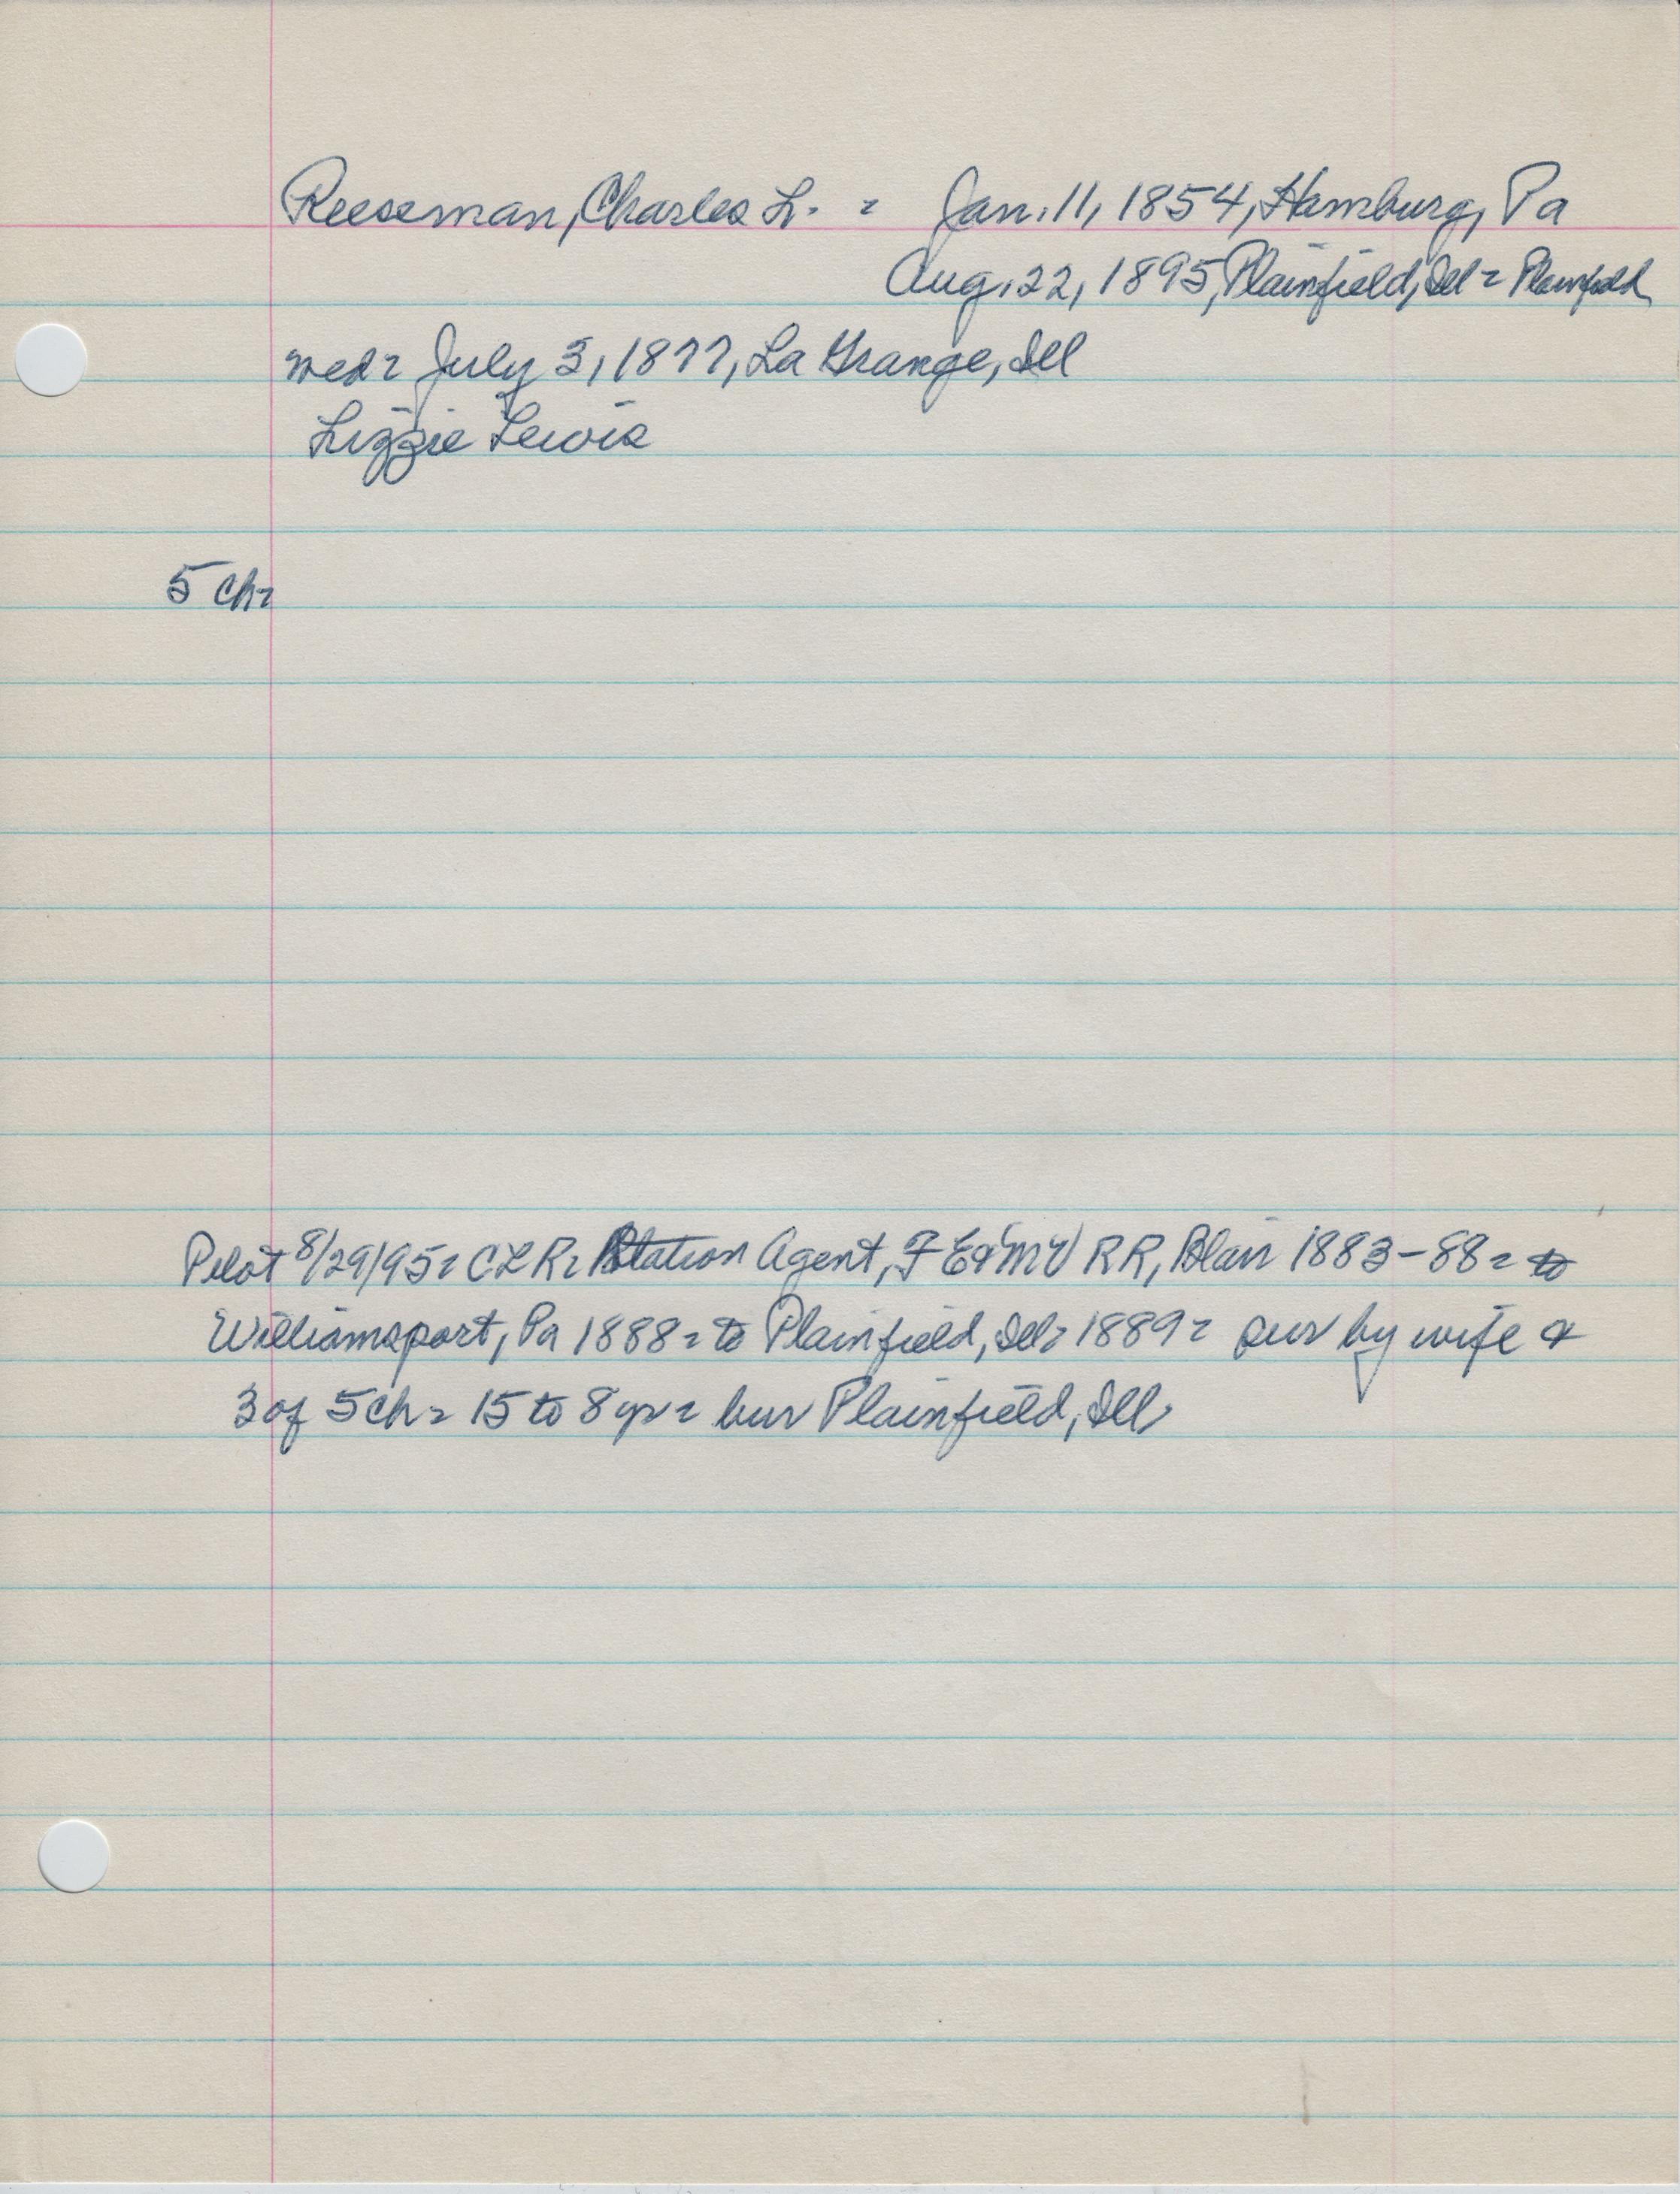 Reeseman, Charles L. = Jan. 11, 1854, Hamburg, Pa
Aug. 22, 1895, Plainfield, Ill = Plainfield
wed = July 3, 1877, La Grange, Ill
Lizzie Lewis
5 ch =
Pilot 8/29/95 = CLR = Station Agent, F E & MV RR, Blair 1883-88 = to
Williamsport, Pa 1888 = to Plainfield, Ill = 1889 = sur by wife &
3 of 5 ch = 15 to 8 yr = bur Plainfield, Ill